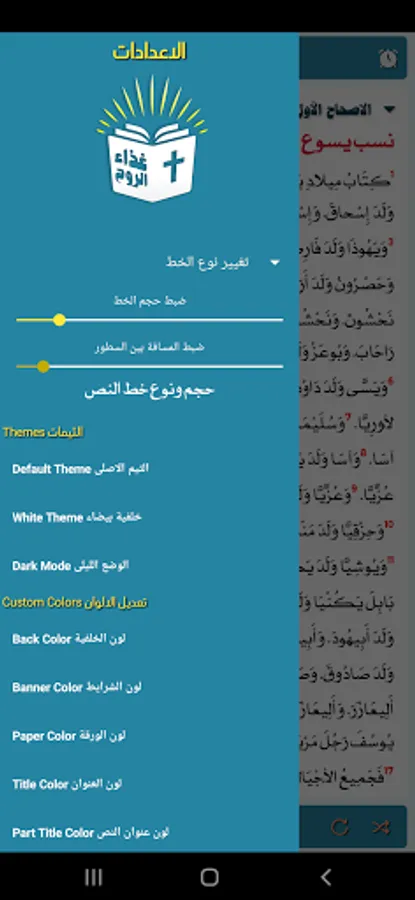 الاعدادات
غذاء
الروح
تغيير نوع الخط
ضبط حجم الخط
ضبط المسافة بين السطور
حجم ونوع خط النص
Themes الثيمات
Default Theme الثيم الاصلى
White Theme خلفية بيضاء
Dark Mode الوضع الليلى
Custom Colors تعديل الالوان
Back Color لون الخلفية
Banner Color لون الشرايط
Paper Color لون الورقة
Title Color لون العنوان
Part Title Color لون عنوان النص
الاصحاح الأول
نسب يسوع
1 كِتَابُ مِيلاَدِ
وَلَدَ إِسْحاقَ. وَإِسْ
3 وَيَهُوذَا وَلَدَ فَارِ
وَحَصْرُونُ وَلَدَ أَرَ
نَحْشُونَ. وَنَحْشُ
رَاحَابَ. وَبُوعَزُ وَلَ
6 وَيَسَّى وَلَدَ دَاوُ
لأُورِيَّا. 7 وَسُلَيْمَا
آسَا. 8 وَآسَا وَلَدَ
عُزِّيَّا. 9 وَعُزِّيَّا وَلَ
10 وَحِزْقِيَّا وَلَدَ مَنَ
11 وَيُوشِيَّا وَلَدَ يَكُ
بَابِلَ يَكُنْيَا وَلَ
وَلَدَ أَبِيهُودَ. وَأَبِي
وَلَدَ صَادُوقَ. وَصَ
أَلِيعَازَرَ. وَأَلِيعَازَ
يُوسُفَ رَجُلَ مَرْيَ
17 فَجَمِيعُ الأَجْيَالِ